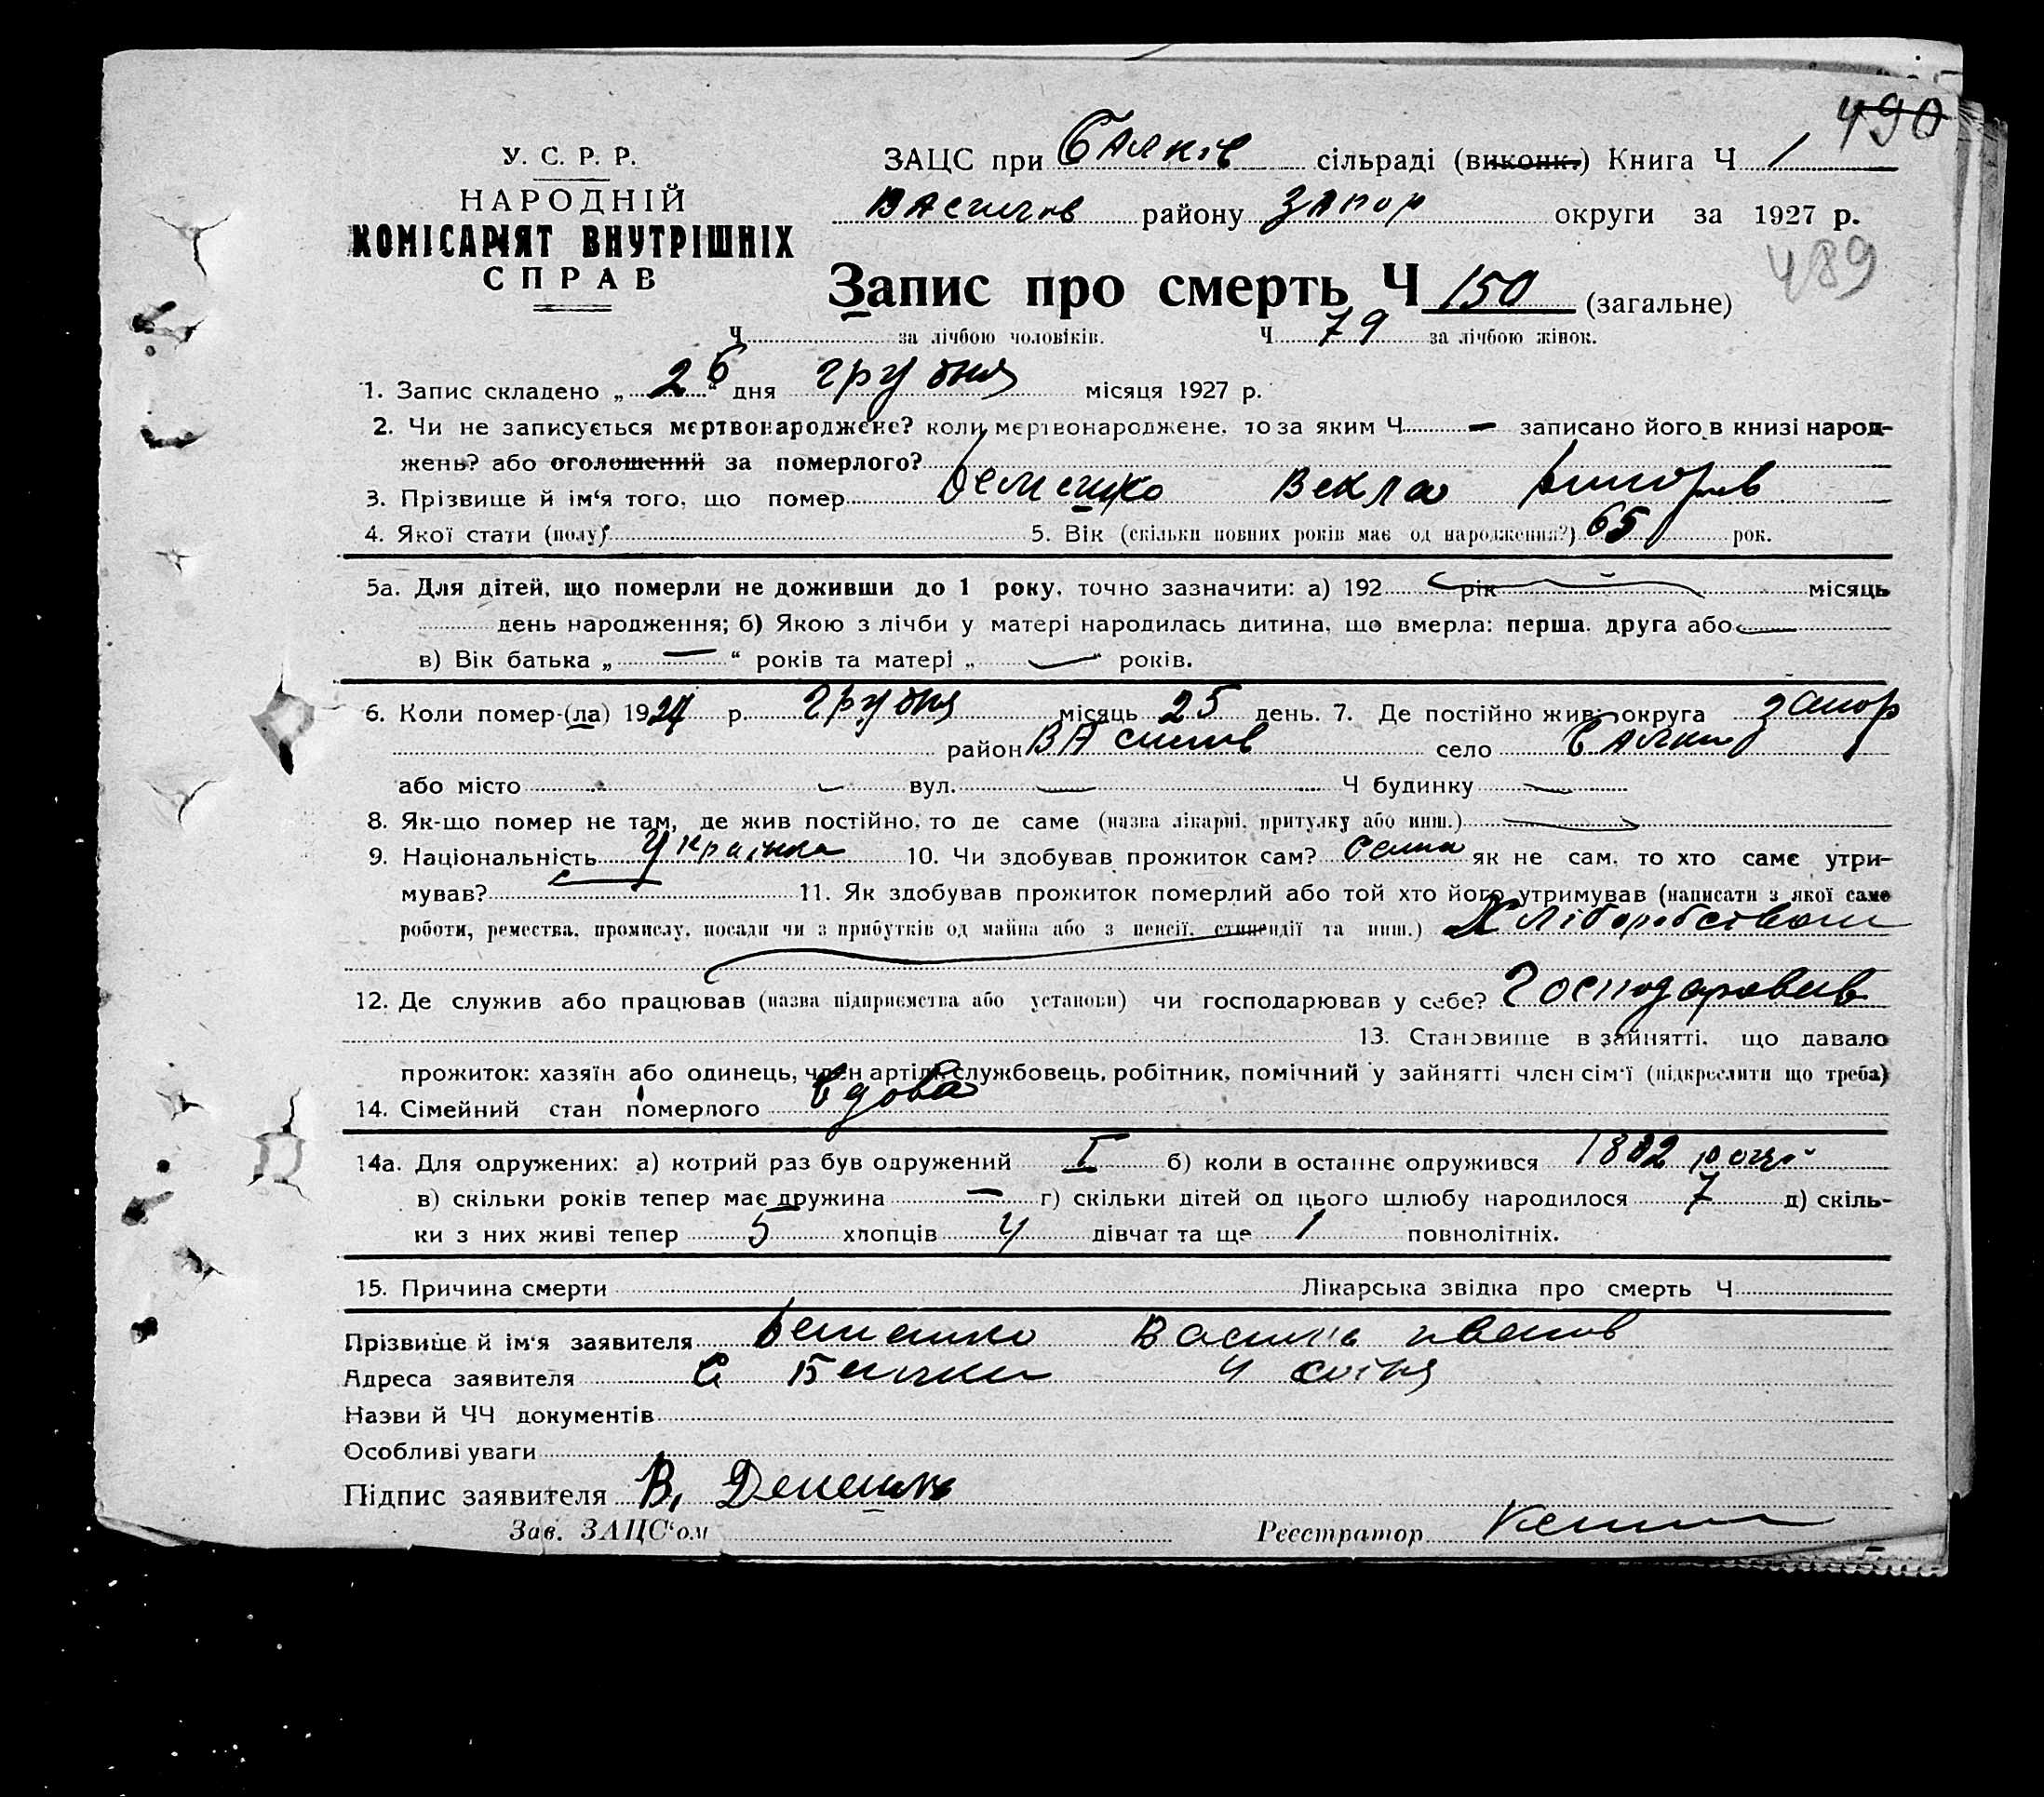 490
У. С. Р. Р.
НАРОДНІЙ
КОМІСАРІЯТ ВНУТРІШНІХ
СПРАВ
ЗАЦС при Балків сільраді (виконк.) Книга Ч 1
Василів району Запор округи за 1927 р.
489
Запис про смерть Ч 150 (загальне)
Ч за лічбою чоловіків. Ч 79 за лічбою жінок.
1. Запис складено „26“ дня грудня місяця 1927 р.
2. Чи не записується мертвонароджене? коли мертвонароджене, то за яким Ч — записано його в книзі народ-
жень? або оголошений за померлого?
3. Прізвище й ім‘я того, що помер Векла
4. Якої стати (полу) 5. Вік (скільки повних років має од народження?) 65 рок.
5а. Для дітей, що померли не доживши до 1 року, точно зазначити: а) 192 рік місяць
день народження; б) Якою з лічби у матері народилась дитина, що вмерла: перша, друга або —
в) Вік батька „—“ років та матері „—“ років.
6. Коли помер-(ла) 1927 р. грудня місяць 25 день. 7. Де постійно жив: округа Запор
район Василів село Балки
або місто — вул. — Ч будинку —
8. Як-що помер не там, де жив постійно, то де саме (назва лікарні, притулку або инш.) —
9. Національність Українка 10. Чи здобував прожиток сам? Сама як не сам, то хто саме утри-
мував? — 11. Як здобував прожиток померлий або той хто його утримував (написати з якої саме
роботи, ремества, промислу, посади чи з прибутків од майна або з пенсії, стипендії та инш.) Хліборобством
12. Де служив або працював (назва підприємства або установи) чи господарював у себе? Господарював
13. Становище в зайнятті, що давало
прожиток: хазяїн або одинець, член артілі, службовець, робітник, помічний у зайнятті член сім‘ї (підкреслити що треба)
14. Сімейний стан померлого Вдова
14а. Для одружених: а) котрий раз був одружений I б) коли в останнє одружився 1882 році
в) скільки років тепер має дружина — г) скільки дітей од цього шлюбу народилося 7 д) скіль-
ки з них живі тепер 5 хлопців 4 дівчат та ще 1 повнолітніх.
15. Причина смерти Лікарська звідка про смерть Ч
Прізвище й ім‘я заявителя Василь Іванов
Адреса заявителя С Балки 4 сотня
Назви й ЧЧ документів
Особливі уваги
Підпис заявителя В.
Зав. ЗАЦС‘ом Реєстратор